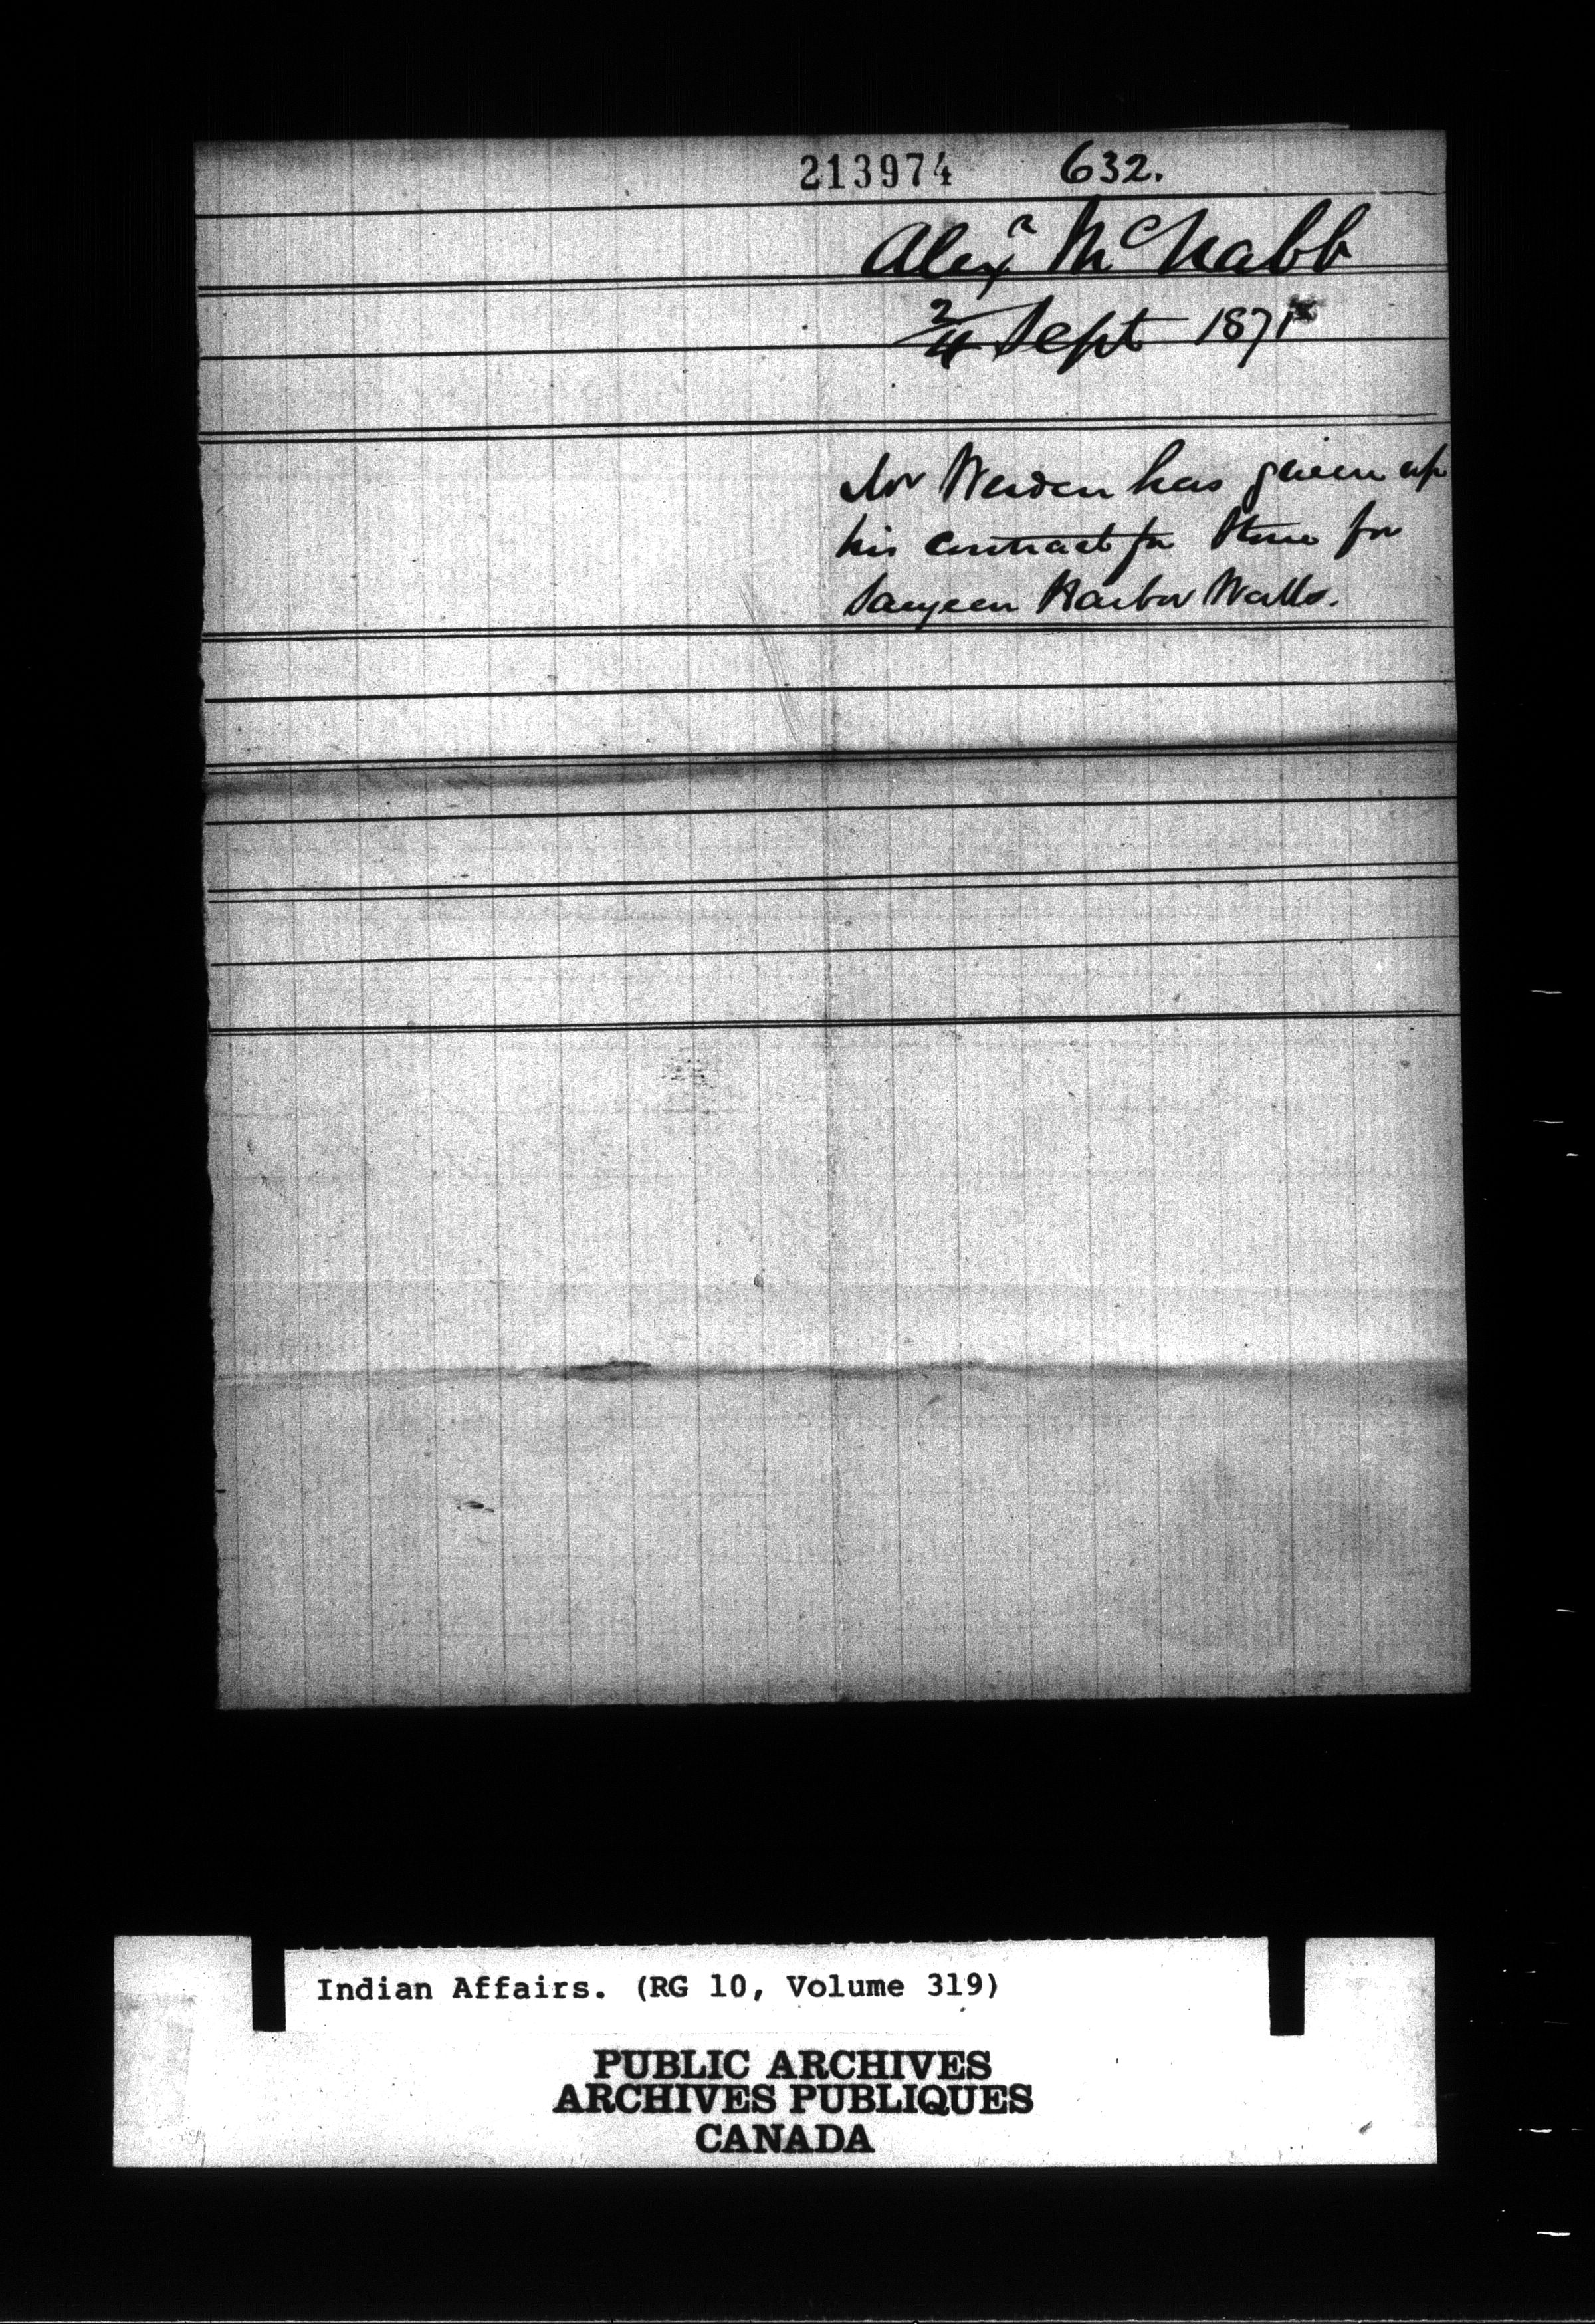 213974 632.
Alexr McNabb
2/4 Sept 1871
Mr has given up
his contract for Stone for
Saugeen Harbor Walls.
Indian Affairs. (RG 10, Volume 319)
PUBLIC ARCHIVES
ARCHIVES PUBLIQUES
CANADA